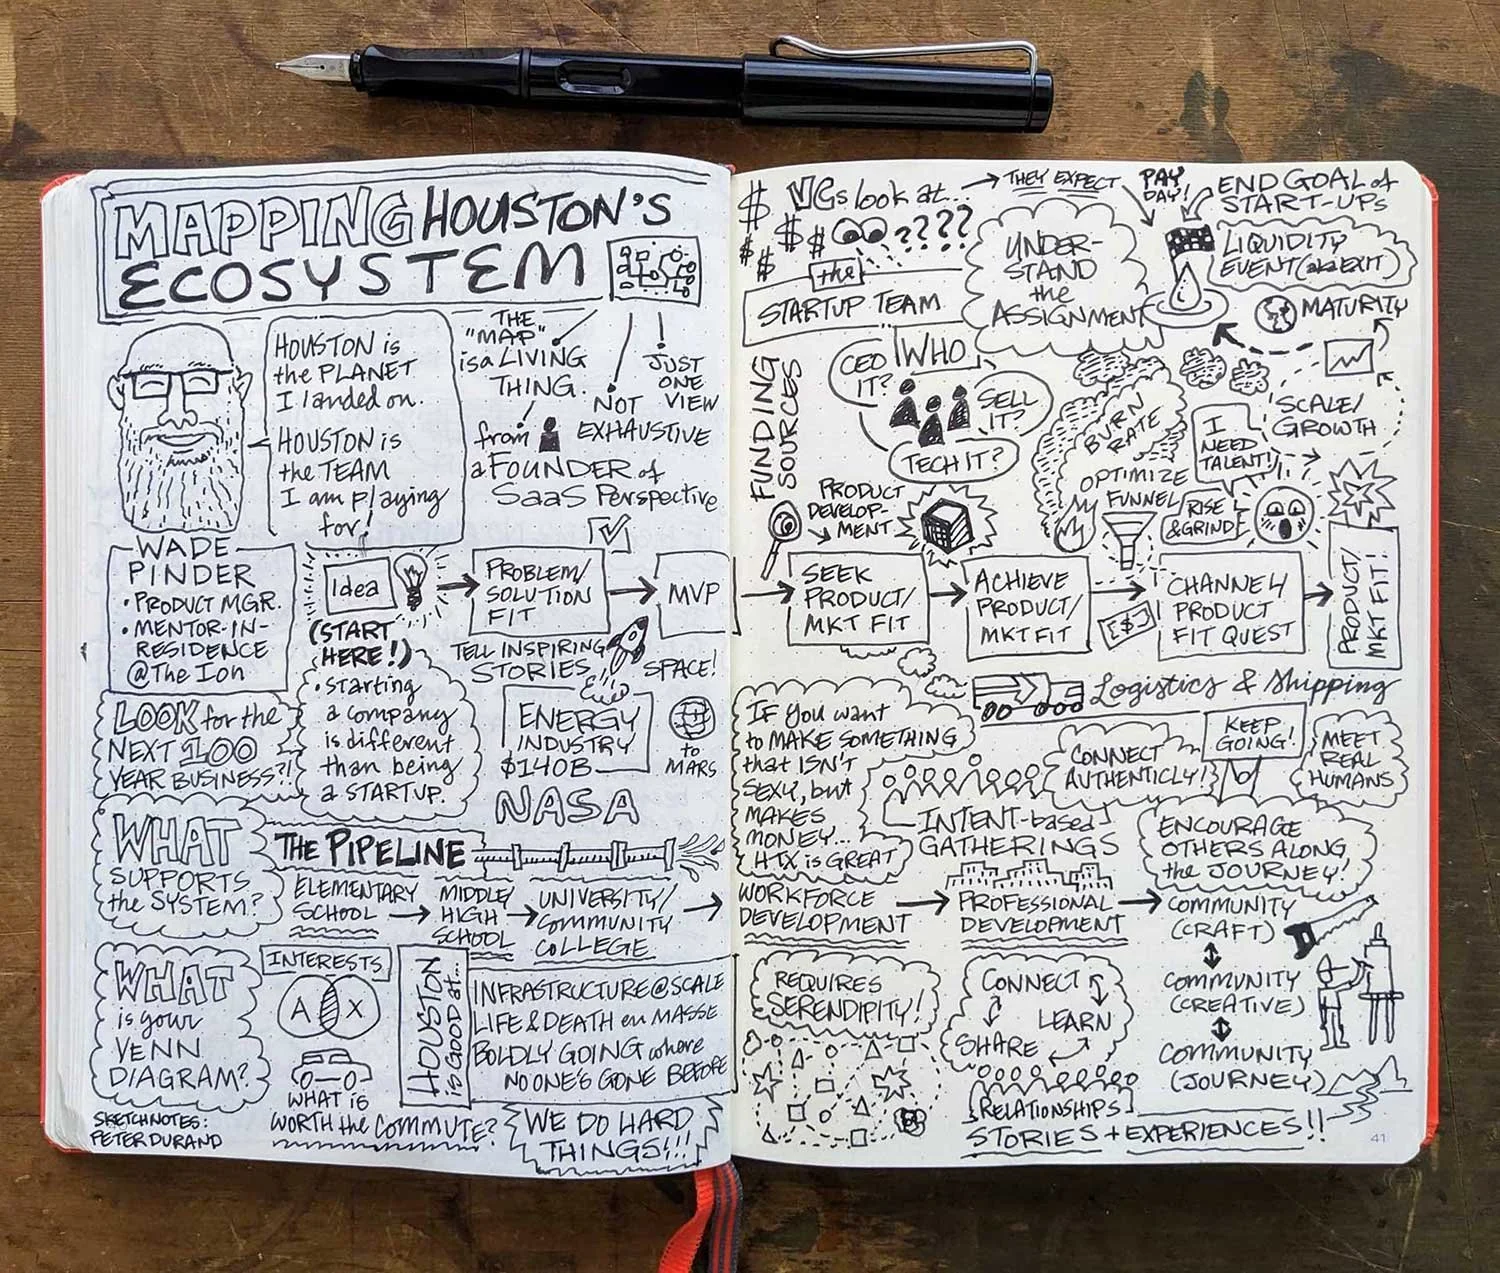 MAPPING HOUSTON'S
ECOSYSTEM
HOUSTON is
the PLANET
I landed on.
HOUSTON is
the TEAM
I am playing
for!
THE
"MAP"
is a LIVING
THING.
from
a FOUNDER of
SaaS Perspective
NOT
EXHAUSTIVE
JUST
ONE
VIEW
WADE
PINDER
• PRODUCT MGR.
• MENTOR-IN-
RESIDENCE
@The Ion
Idea
(START
HERE!)
• starting
a company
is different
than being
a STARTUP.
PROBLEM/
SOLUTION
FIT
MVP
TELL INSPIRING
STORIES
SPACE!
ENERGY
INDUSTRY
$140B
to
MARS
NASA
LOOK for the
NEXT 100
YEAR BUSINESS?!
WHAT
SUPPORTS
the SYSTEM?
THE PIPELINE
ELEMENTARY
SCHOOL
MIDDLE/
HIGH
SCHOOL
UNIVERSITY/
COMMUNITY
COLLEGE
WHAT
is your
VENN
DIAGRAM?
INTERESTS
A X
WHAT is
WORTH the COMMUTE?
HOUSTON
is GOOD at...
INFRASTRUCTURE @ SCALE
LIFE & DEATH en MASSE
BOLDLY GOING where
NO ONE'S GONE BEFORE
WE DO HARD
THINGS!!!
SKETCHNOTES:
PETER DURAND
$ $ $ $ $
VCs look at...
????
the
STARTUP TEAM
THEY EXPECT
UNDER-
STAND
the
ASSIGNMENT
PAY
DAY!
END GOAL of
START-UPs
LIQUIDITY
EVENT (aka EXIT)
MATURITY
SCALE/
GROWTH
FUNDING
SOURCES
WHO
CEO
IT?
SELL
IT?
TECH IT?
PRODUCT
DEVELOP-
MENT
BURN
RATE
OPTIMIZE
FUNNEL
I
NEED
TALENT!
RISE
& GRIND
SEEK
PRODUCT/
MKT FIT
ACHIEVE
PRODUCT/
MKT FIT
[$]
CHANNEL/
PRODUCT
FIT QUEST
PRODUCT/
MKT FIT!
Logistics & Shipping
IF you want
to MAKE SOMETHING
that ISN'T
SEXY, but
MAKES
MONEY...
HTX is GREAT
INTENT-based
GATHERINGS
CONNECT
AUTHENTICLY!
KEEP
GOING!
MEET
REAL
HUMANS
ENCOURAGE
OTHERS ALONG
the JOURNEY!
WORKFORCE
DEVELOPMENT
PROFESSIONAL
DEVELOPMENT
COMMUNITY
(CRAFT)
COMMUNITY
(CREATIVE)
COMMUNITY
(JOURNEY)
REQUIRES
SERENDIPITY!
CONNECT
LEARN
SHARE
RELATIONSHIPS
STORIES + EXPERIENCES!!
41